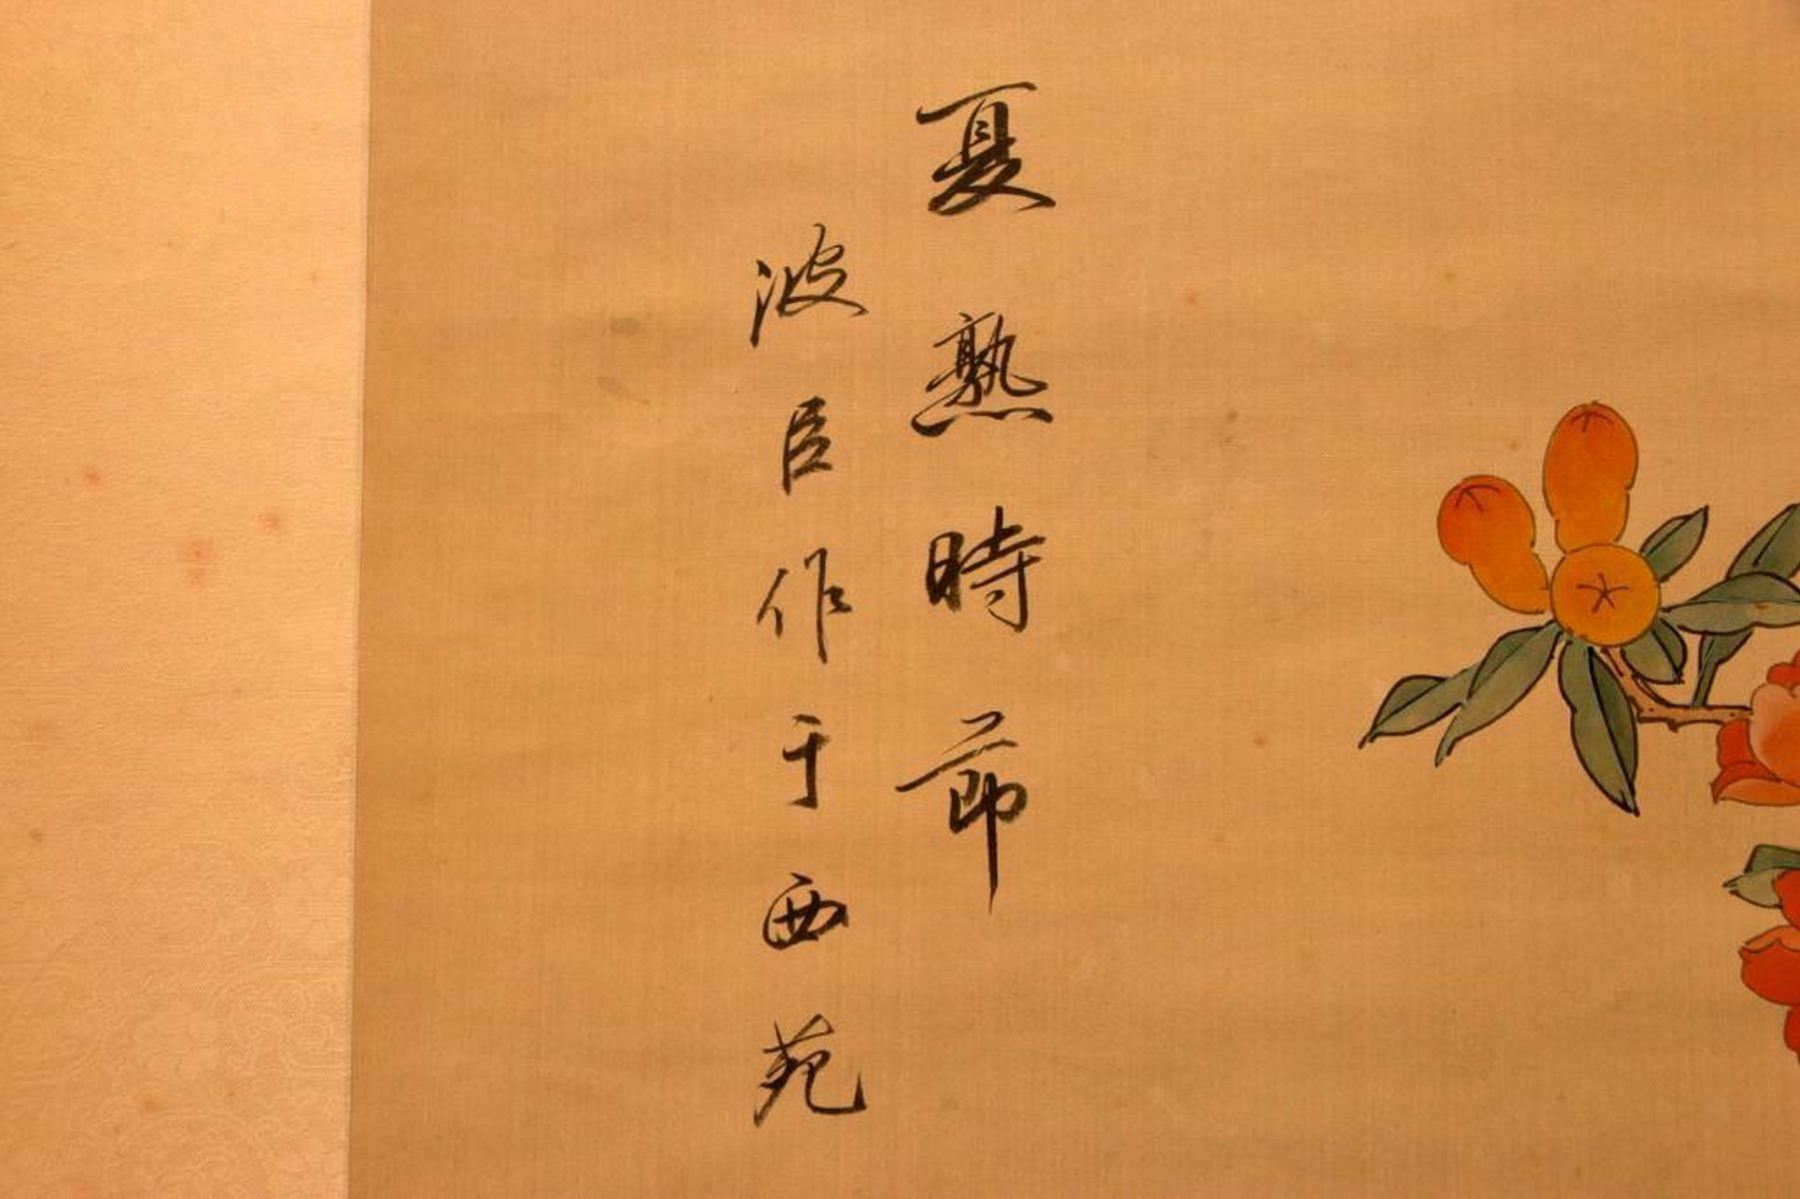 夏熟時節
波臣作于西苑